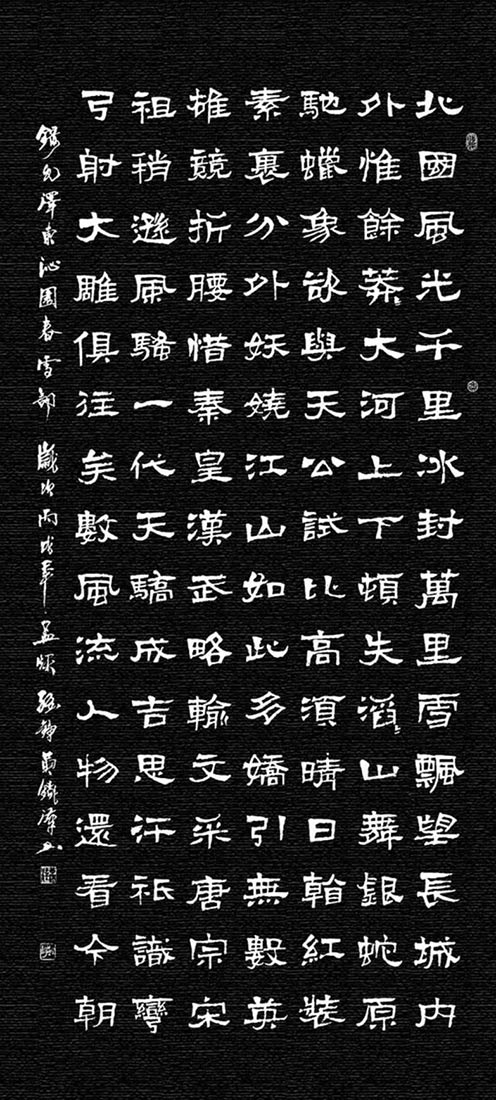 北國風光千里冰封萬里雪飄望長城內
外惟餘莽〻大河上下頓失滔〻山舞銀蛇原
馳蠟象欲與天公試比高須晴日看紅裝
素裹分外妖嬈江山如此多嬌引無數英
雄競折腰惜秦皇漢武略輸文采唐宗宋
祖稍遜風騷一代天驕成吉思汗祇識彎
弓射大雕俱往矣數風流人物還看今朝
錄毛澤東沁園春雪詞 歲次丙戌年孟